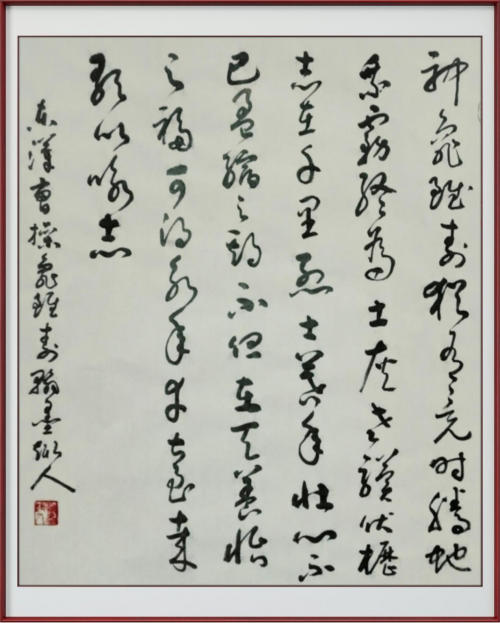 神龜雖壽猶有竟時騰蛇
乘霧終為土灰老驥伏櫪
志在千里烈士暮年壯心不
已盈縮之期不但在天養怡
之福可得永年幸甚至哉
歌以咏志
東漢曹操龜雖壽翰墨人